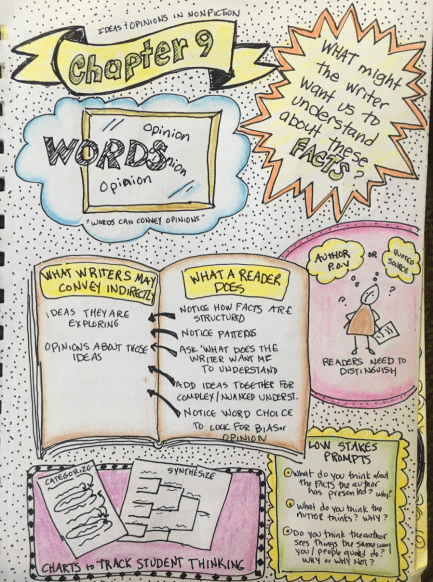 IDEAS & OPINIONS IN NONFICTION
Chapter 9
WHAT might
the writer
want us to
understand
about these
FACTS?
WORDS
Opinion
nion
Opinion
"WORDS CAN CONVEY OPINIONS"
WHAT WRITERS MAY
CONVEY INDIRECTLY
IDEAS THEY ARE
EXPLORING
OPINIONS ABOUT THOSE
IDEAS
WHAT A READER
DOES
NOTICE HOW FACTS ARE
STRUCTURED
NOTICE PATTERNS
ASK "WHAT DOES THE
WRITER WANT ME
TO UNDERSTAND
ADD IDEAS TOGETHER FOR
COMPLEX/NUANCED UNDERST.
NOTICE WORD CHOICE
TO LOOK FOR BIAS or
OPINION
AUTHOR
P.O.V
OR
QUOTED
SOURCE
? ?
READERS NEED TO
DISTINGUISH
CATEGORIZE
SYNTHESIZE
CHARTS to TRACK STUDENT THINKING
LOW STAKES
PROMPTS
What do you think about
the FACTS the author
has presented? Why?
What do you think the
AUTHOR thinks? WHY?
Do you think the author
sees things the same way
you / people quoted do?
WHY or WHY NOT?